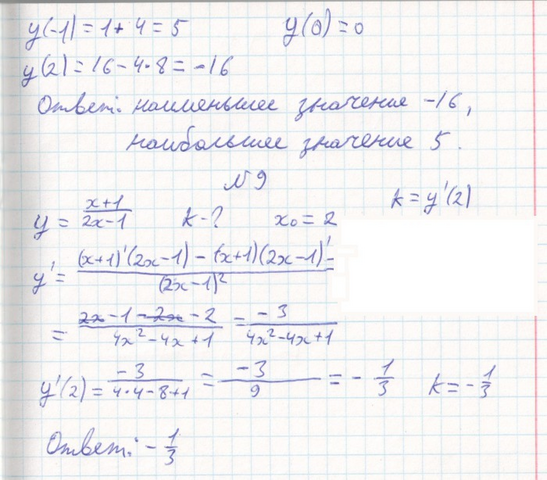 y(-1) = 1 + 4 = 5 y(0) = 0
y(2) = 16 - 4·8 = -16
Ответ: наименьшее значение -16,
наибольшее значение 5.
№9
y = (x+1)/(2x-1) k-? x₀ = 2 k = y'(2)
y' = ((x+1)'(2x-1) - (x+1)(2x-1)')/(2x-1)² =
= (2x-1-2x-2)/(4x²-4x+1) = -3/(4x²-4x+1)
y'(2) = -3/(4·4-8+1) = -3/9 = -1/3 k = -1/3
Ответ: -1/3